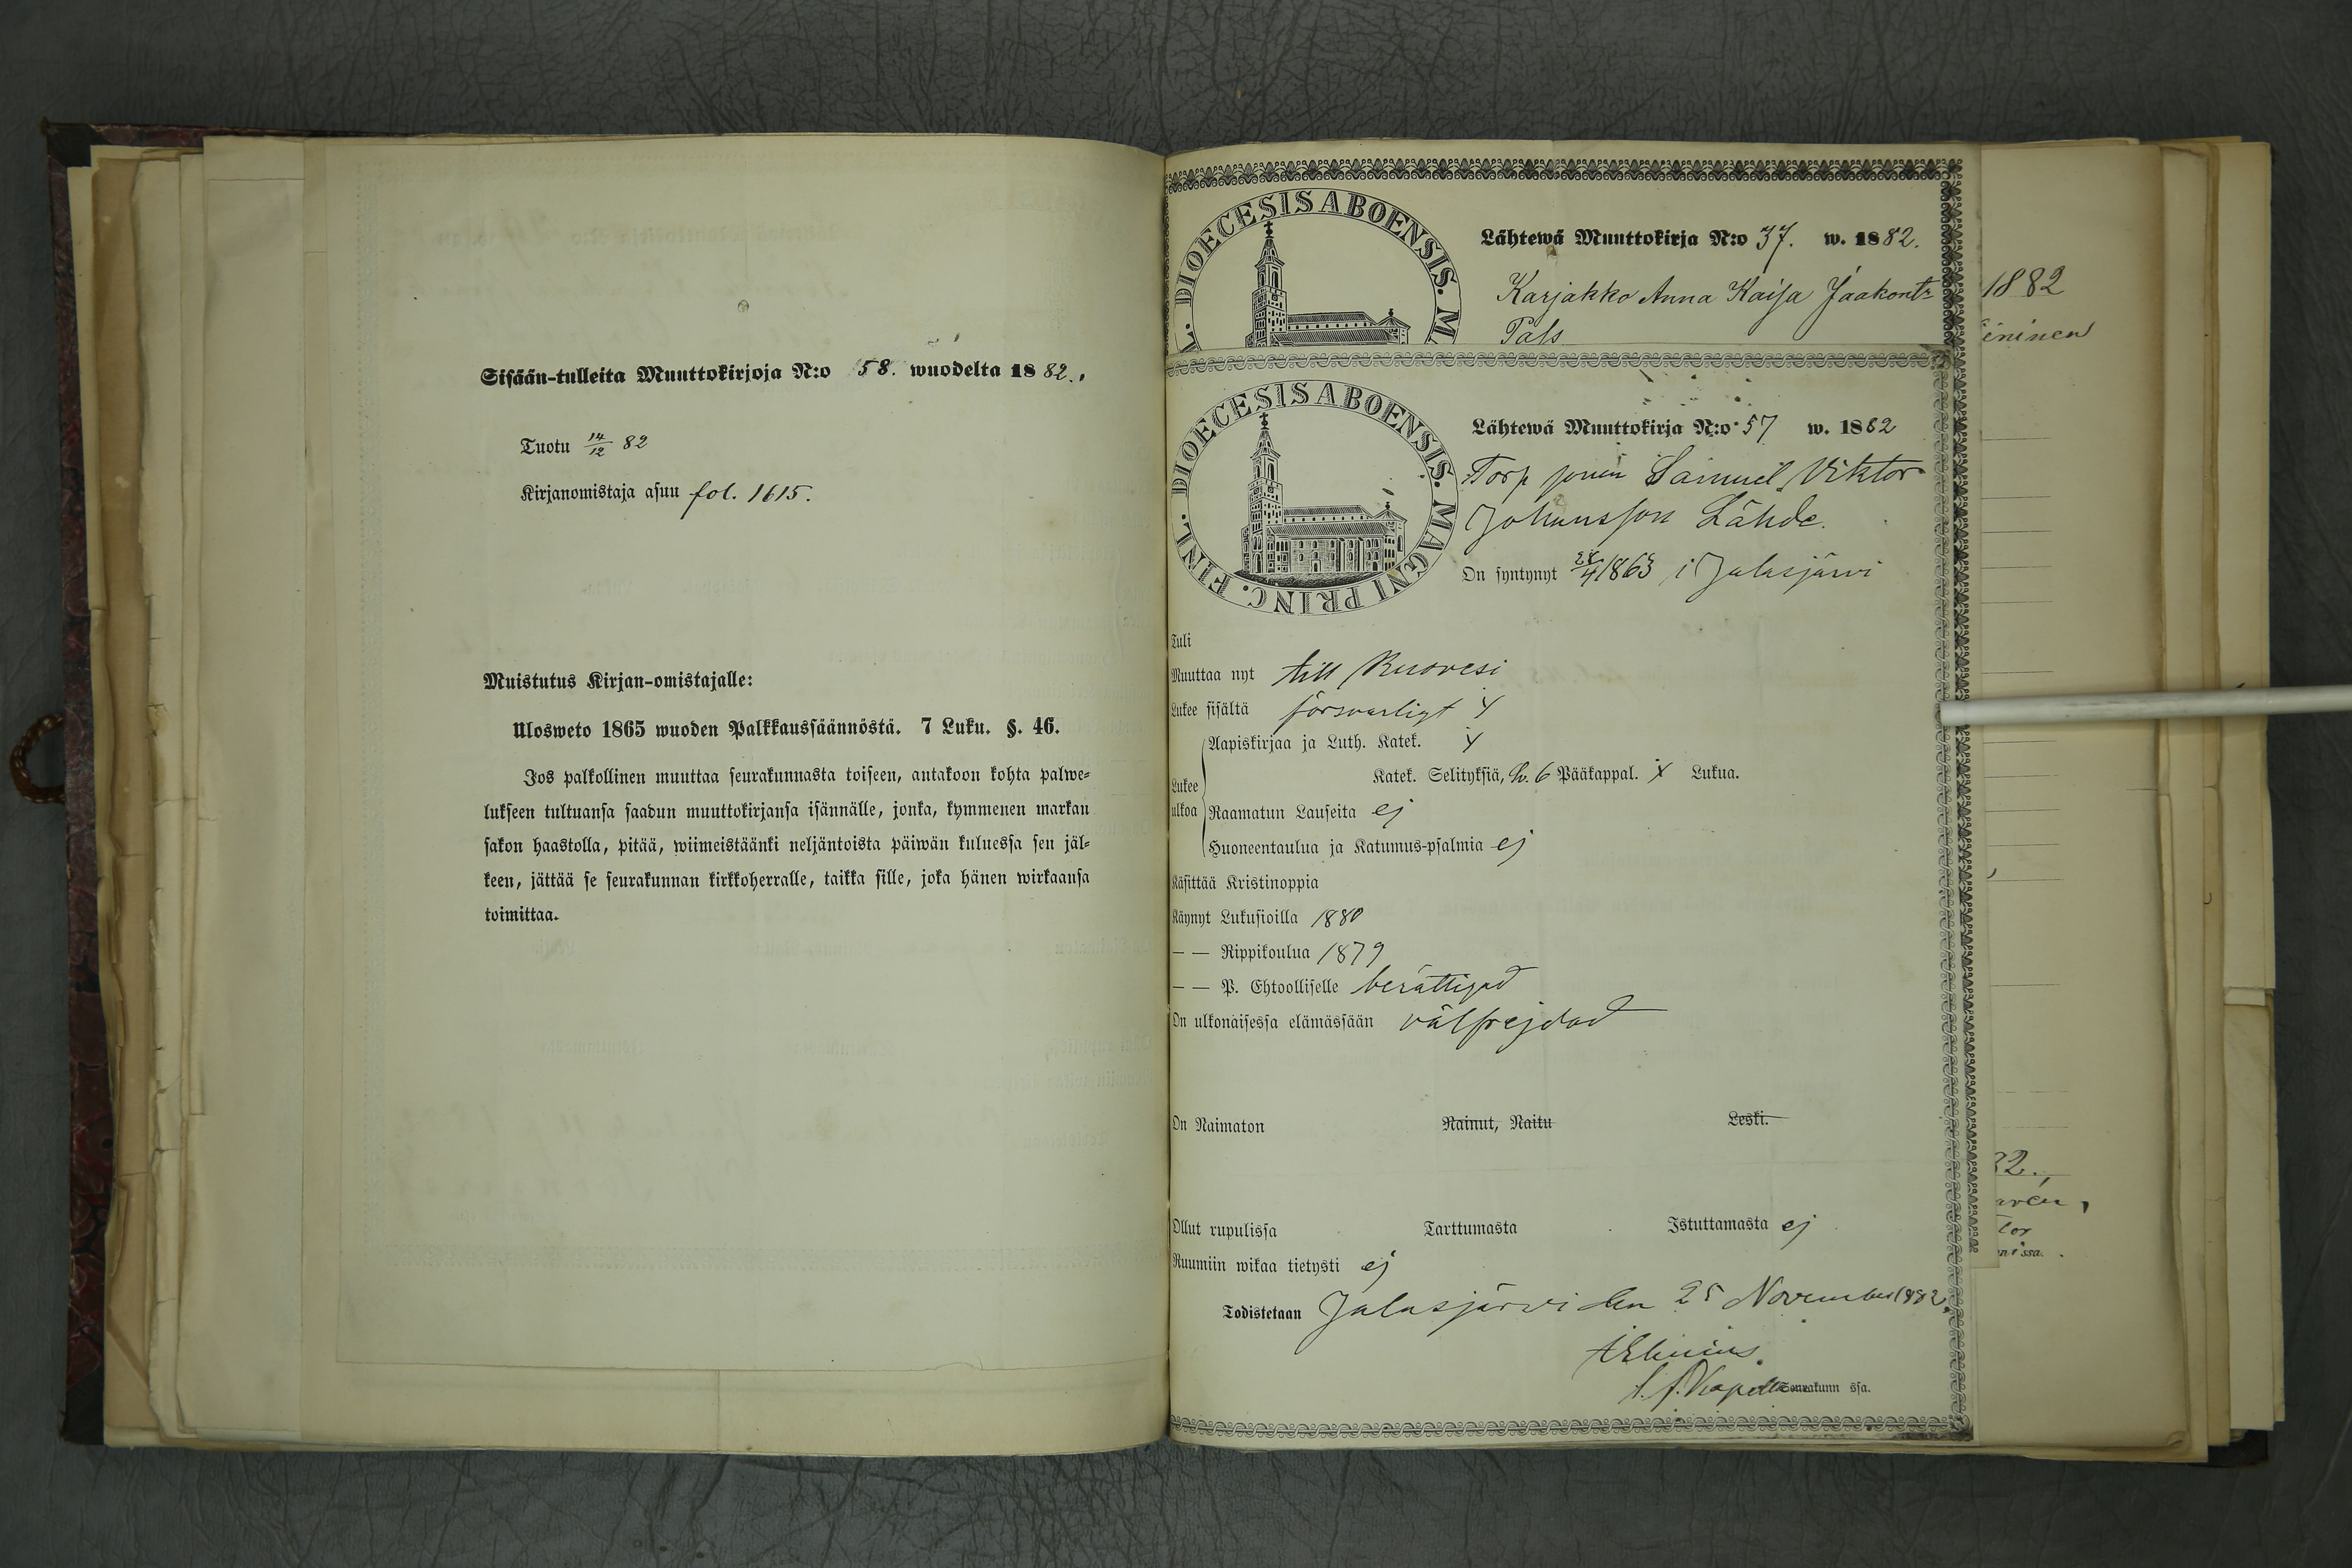 Sisään-tulleita Muuttokirjoja N:o 58. wuodelta 1882.
Tuotu 14/12 82
Kirjanomistaja asuu fol. 1615.
Muistutus Kirjan-omistajalle:
Ulosweto 1865 wuoden Palkkaussäännöstä. 7 Luku. §. 46.
Jos palkollinen muuttaa seurakunnasta toiseen, antakoon kohta palwe-
lukseen tultuansa saadun muuttokirjansa isännälle, jonka, kymmenen markan
sakon haastolla, pitää, wiimeistäänki neljäntoista päiwän kuluessa sen jäl-
keen, jättää se seurakunnan kirkkoherralle, taikka sille, joka hänen wirkaansa
toimittaa.
L. DIOECESIS ABOENSIS. M
Lähtewä Muuttokirja N:o 37. w. 1882.
Karjakko Anna Kaisa Jaakont:
Pals
FINL. DIOECESIS ABOENSIS. MAGNI PRINC.
Lähtewä Muuttokirja N:o 57 w. 1882
Torp sonen Samuel Viktor
Johansson Lähde.
On syntynyt 1863 i Jalasjärvi
Tuli
Muuttaa nyt till Ruovesi
Lukee sisältä försvarligt
Aapiskirjaa ja Luth. Katek.
Katek. Selityksiä, h. 6 Pääkappal. Lukua.
Lukee
ulkoa
Raamatun Lauseita ej
Huoneentaulua ja Katumus-psalmia ej
Käsittää Kristinoppia
Käynyt Lukusioilla 1880
— — Rippikoulua 1879
— — P. Ehtoolliselle berättigad
On ulkonaisessa elämässään välfrejdad
On Naimaton Nainut, Naitu Leski.
Ollut rupulissa Tarttumasta Istuttamasta ej
Ruumiin wikaa tietysti ej
Todistetaan Jalasjärvi den 25 November 1882
seurakunn ssa.
1882
ininen